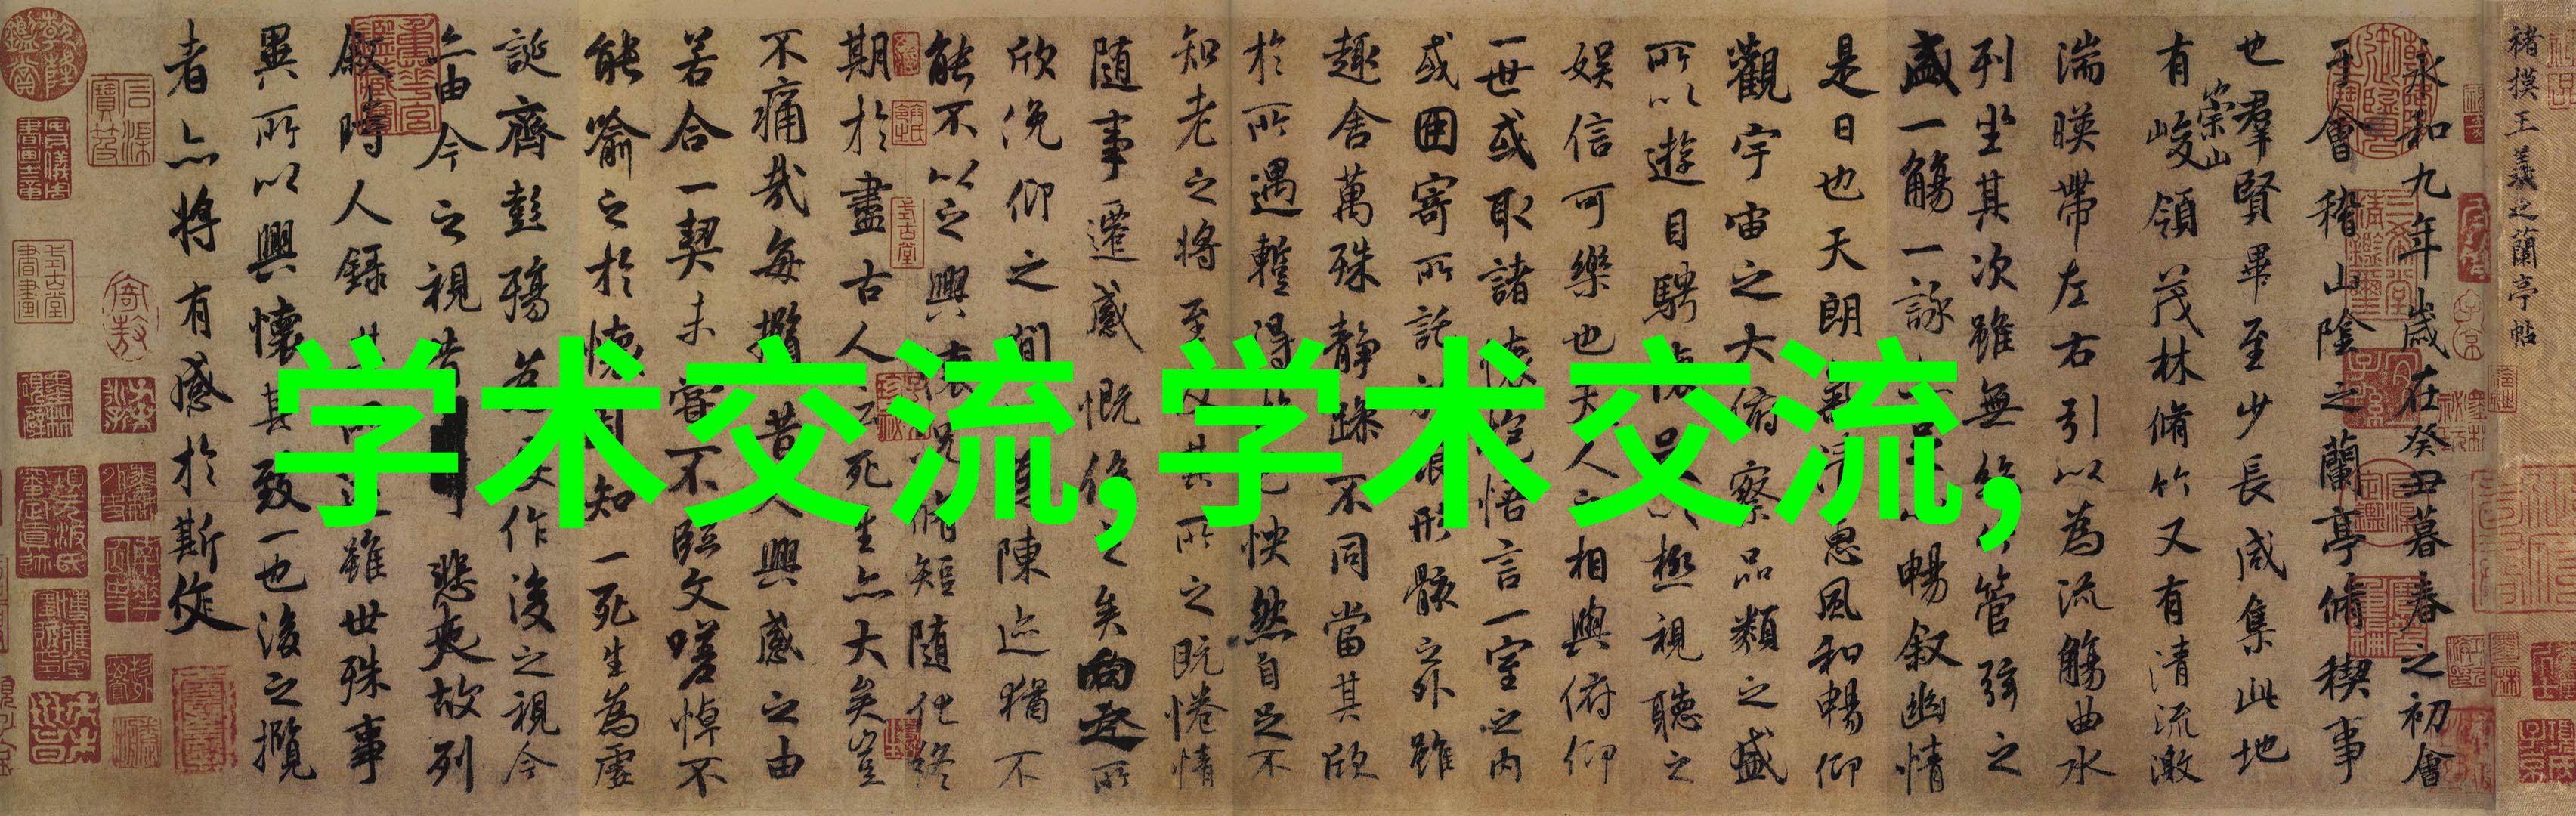 学术交流,学术交流,
褚摸王羲之蘭亭帖
永和九年歲在癸丑暮春之初會
于會稽山陰之蘭亭脩稧事
也羣賢畢至少長咸集此地
有崇山峻領茂林脩竹又有清流激
湍暎帶左右引以為流觴曲水
列坐其次雖無絲竹管弦之
盛一觴一詠亦足以暢叙幽情
是日也天朗氣清惠風和暢仰
觀宇宙之大俯察品類之盛
所以遊目騁懷足以極視聽之
娛信可樂也夫人之相與俯仰
一世或取諸懷抱悟言一室之內
或因寄所託放浪形骸之外雖
趣舍萬殊静躁不同當其欣
於所遇暫得於己怏然自足不
知老之將至及其所之既惓情
随事遷感慨係之矣向之所
欣俛仰之間以為陳迹猶不
能不以之興懷况脩短随化終
期於盡古人云死生亦大矣豈
不痛哉每攬昔人興感之由
若合一契未嘗不臨文嗟悼不
能喻之於懷固知一死生為虛
誕齊彭殤為妄作後之視今
亦由今之視昔悲夫故列
叙時人錄其所述雖世殊事
異所以興懷其致一也後之攬
者亦將有感於斯文